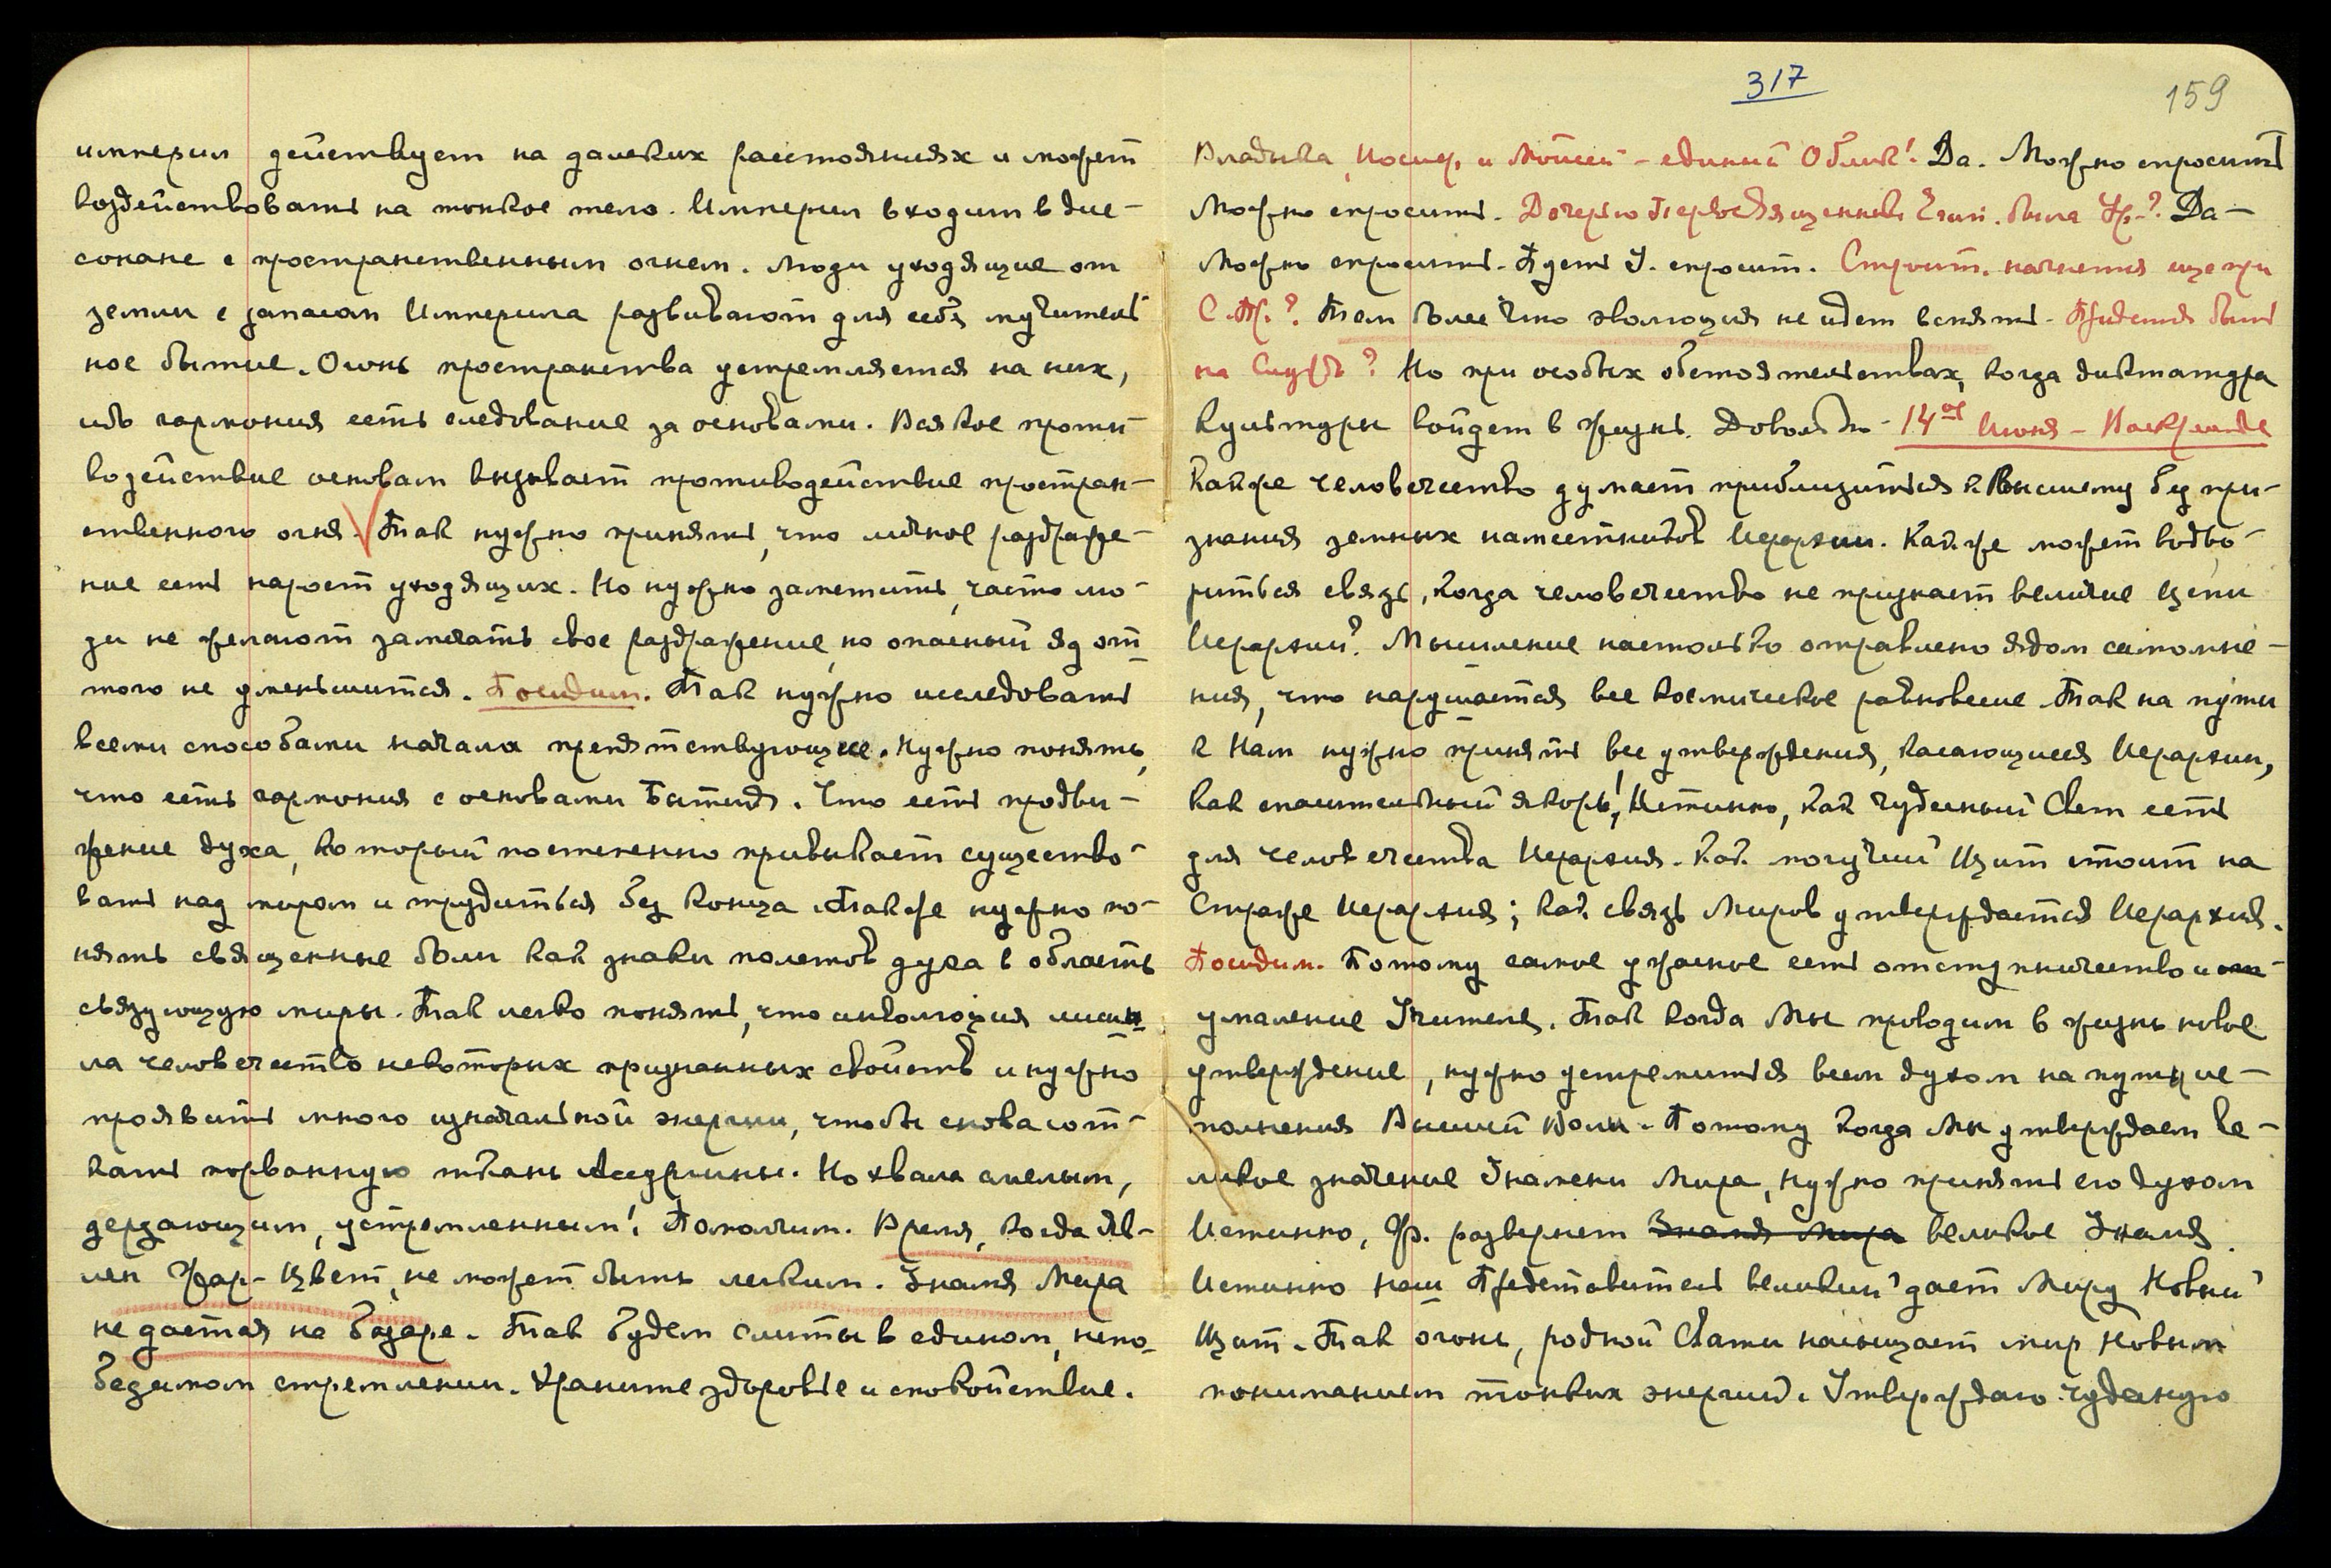 империл действует на далеких расстояниях и может
воздействовать на тонкое тело. Империл входит в дис-
сонанс с пространственным огнем. Люди уходящие от
земли с запасом Империла развивают для себя мучитель-
ное бытие. Огонь пространства устремляется на них,
ибо гармония есть следование за основами. Всякое проти-
водействие основам вызывает противодействие простран-
ственного огня. Так нужно принять, что личное раздраже-
ние есть нарост уходящих. Но нужно заметить, часто лю-
ди не желают замечать свое раздражение, но опасный яд от
того не уменьшится. Посидим. Так нужно исследовать
всеми способами начала препятствующие. Нужно понять,
что есть гармония с основами Бытия. Что есть продви-
жение духа, который постепенно привыкает существо-
вать над миром и трудиться без конца. Также нужно по-
нять священные боли как знаки полетов духа в область
связующую миры. Так легко понять, что инволюция лиши-
ла человечество некоторых признанных свойств и нужно
проявить много изначальной энергии, чтобы снова сот-
кать порванную ткань Аседрины. Но хвала смелым,
дерзающим, устремленным! Помолчим. Время, когда яв-
лен Жар-Цвет, не может быть легким. Знамя Мира
не дается на базаре. Так будем слиты в едином, непо-
бедимом стремлении. Храните здоровье и спокойствие.
317
159
Владыка, Иосиф и Моисей - единый Облик! Да. Можно спросить
Можно спросить. Дочерью Первосвященника Егип. была Ур.? Да -
Можно спросить. Пусть У. спросит. Строит. начнется еще при
С. Тр.? Тем более что эволюция не идет вспять. Придется быть
на Службе? Но при особых обстоятельствах, когда диктатура
Культуры войдет в жизнь. Довольно - 14ое Июня - Воскресенье
Как же человечество думает приблизиться к Высшему без при-
знания земных наместников Иерархии. Как же может водво-
риться связь, когда человечество не признает величие Цепи
Иерархии? Мышление настолько отравлено ядом самомне-
ния, что нарушается все космическое равновесие. Так на пути
к Нам нужно принять все утверждения, касающиеся Иерархии,
как спасительный якорь! Истинно, как чудесный Свет есть
для человечества Иерархия. Как могучий Щит стоит на
Страже Иерархия; как связь Миров утверждается Иерархия.
Посидим. Потому самое ужасное есть отступничество и
умаление Учителя. Так когда Мы приводим в жизнь новое
утверждение, нужно устремиться всем духом на путь ис-
полнения Высшей Воли. Потому когда Мы утверждаем ве-
ликое значение Знамени Мира, нужно принять его духом
Истинно, Ф. развернет Знамя Мира великое Знамя.
Истинно наш Представитель великий дает Миру Новый
Щит. Так огонь, родной Свати насыщает мир Новым
пониманием тонких энергий. Утверждаю чудесную